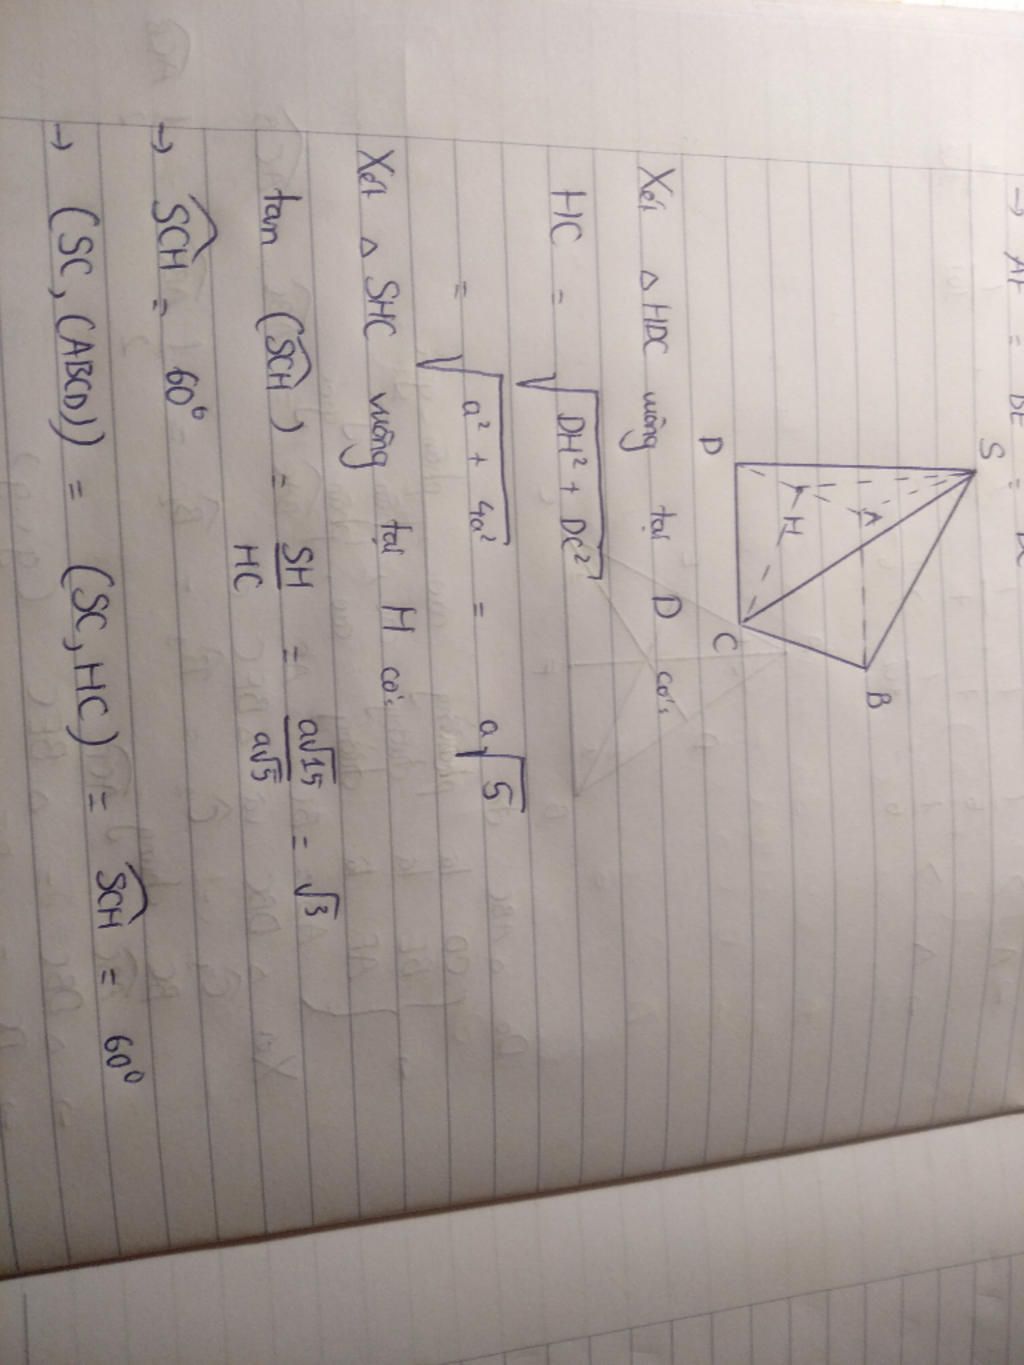 → AF = DE = DC
S
A
B
H
D
C
Xét △ HDC vuông tại D có:
HC = √DH² + DC²
= √a² + 4a² = a√5
Xét △ SHC vuông tại H có:
tan (SCH) = SH/HC = a√15/a√5 = √3
→ SCH = 60⁰
→ (SC, (ABCD)) = (SC, HC) = SCH = 60⁰